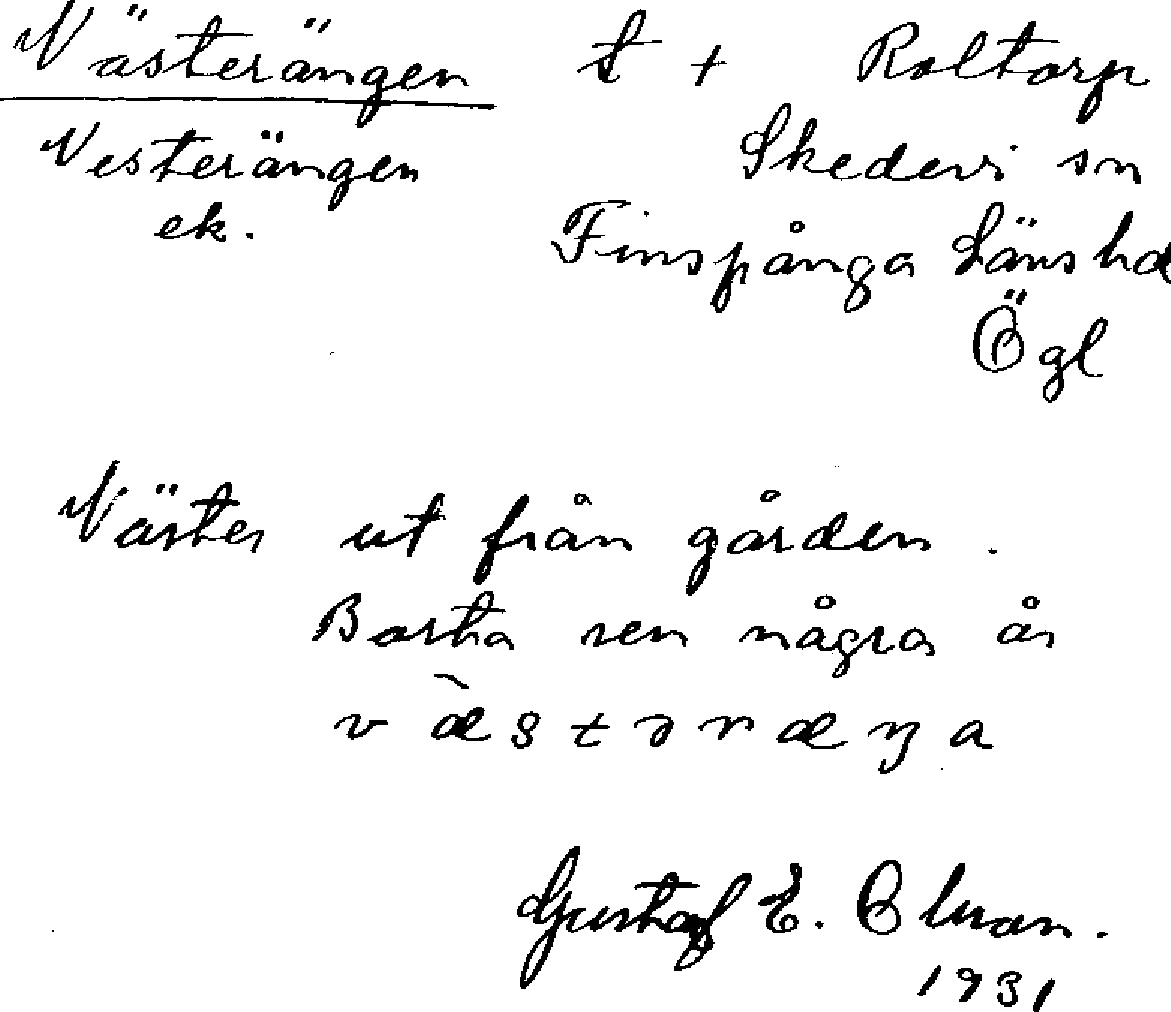 Västerängen t + Roltorp
Vesterängen Skedevi sn
ek. Finspånga Länshd
Ögl
Väster ut från gården.
Borta sen några år
væ̀stəræŋa
Gustaf E.
1931